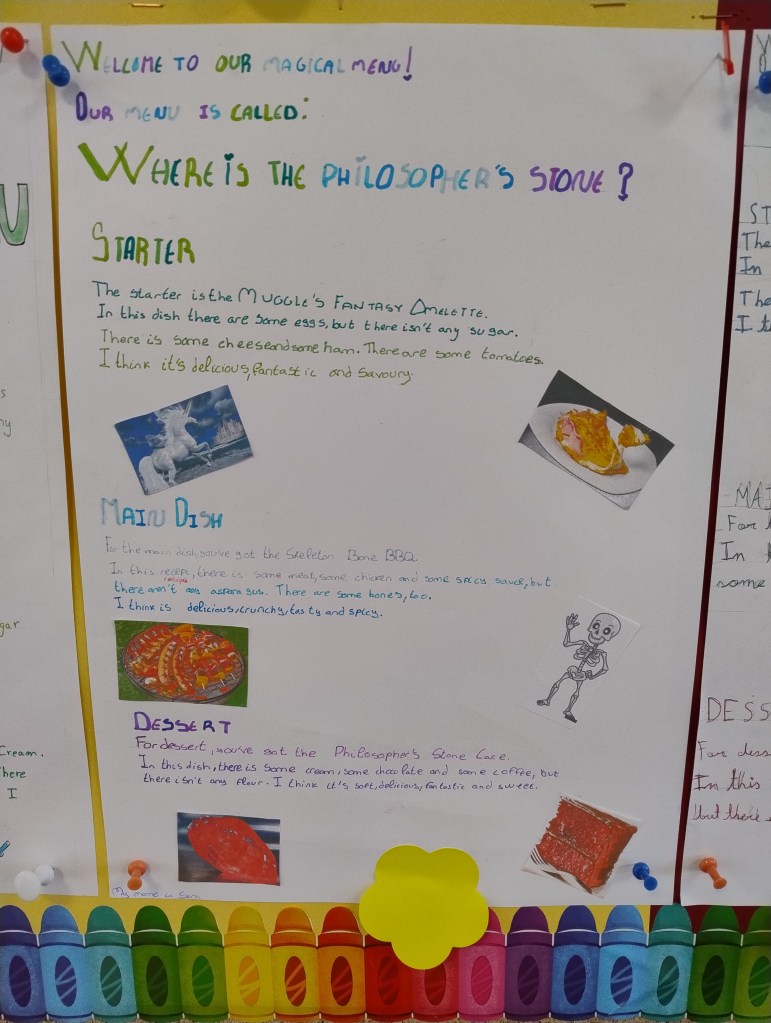 WELLCOME TO OUR MAGICAL MENU!
OUR MENU IS CALLED:
WHERE IS THE PHILOSOPHER'S STONE?
STARTER
The starter is the MUGGLE'S FANTASY OMELETTE.
In this dish there are some eggs, but there isn't any sugar.
There is some cheese and some ham. There are some tomatoes.
I think it's delicious, fantastic and savoury.
MAIN DISH
For the main dish, you've got the Skeleton Bone BBQ.
In this recepi, there is some meat, some chicken and some spicy sauce, but
recipe
there aren't any asparagus. There are some bones, too.
I think is delicious, crunchy, tasty and spicy.
DESSERT
For dessert, you've got the Philosopher's Stone Cake.
In this dish, there is some cream, some chocolate and some coffee, but
there isn't any flour. I think it's soft, delicious, fantastic and sweet.
My name is Sara
gar
Cream.
There
I
ST
The
In
The
I t
MAI
For
In
some
DESS
For dess
In this
but there